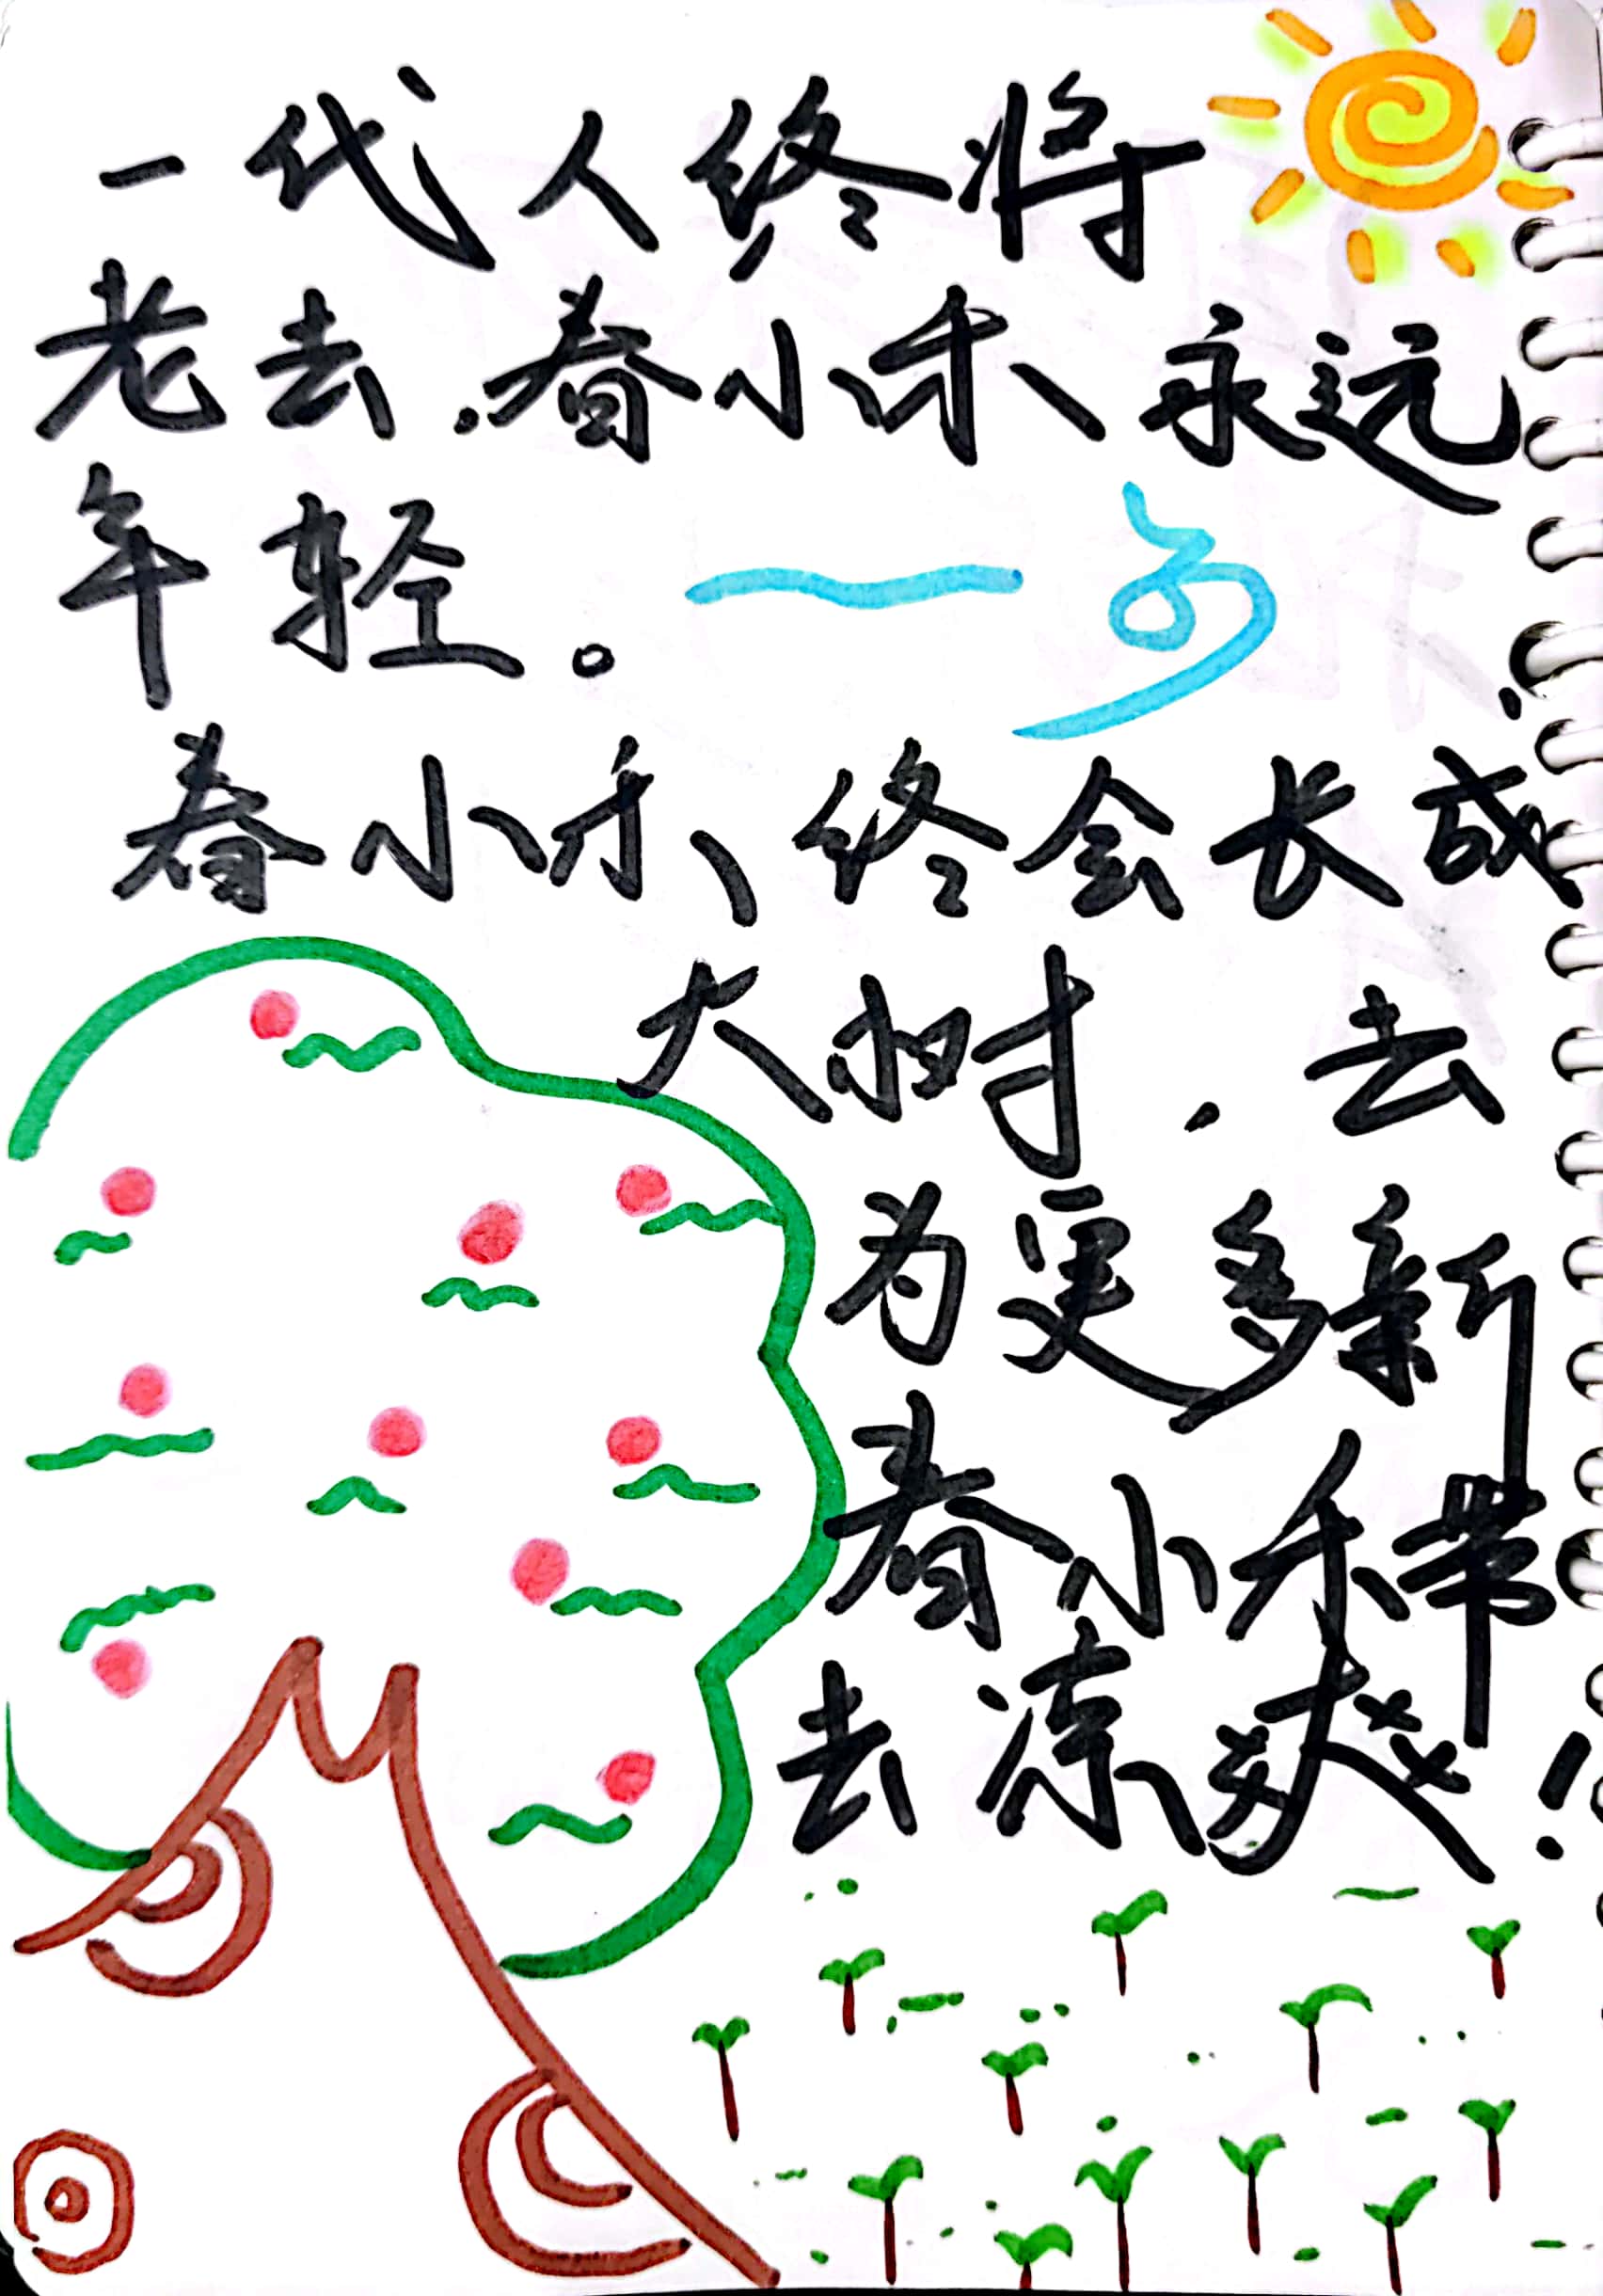 一代人终将
老去.春小禾永远
年轻。
春小禾终会长成
大树.去
为更多新
春小禾带
去凉爽!